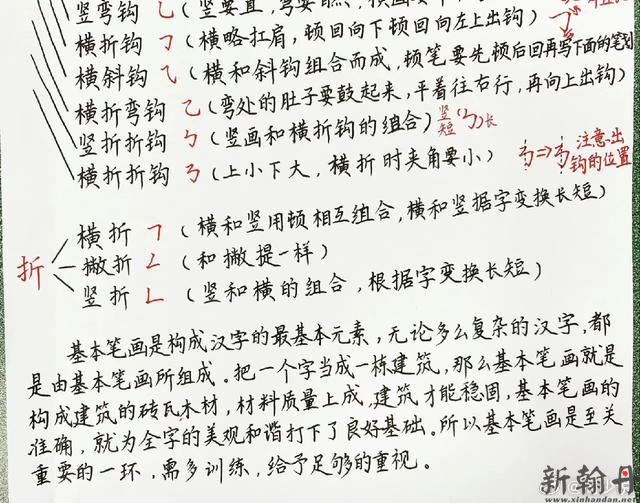 竖弯钩 乚(竖要直,弯要
横折钩 ㇆(横略扛肩,顿回向下顿回向左上出钩)
横斜钩 ⺄(横和斜钩组合而成,顿笔要先顿后回再写下面的笔划
横折弯钩 乙(弯处的肚子要鼓起来,平着往右行,再向上出钩)
竖折折钩 ㄅ(竖画和横折钩的组合)竖短(ㄅ)长
横折折钩 ㄋ(上小下大,横折时夹角要小) ㄋ=>ㄋ 注意出钩的位置
折
横折 ㇕(横和竖用顿相互组合,横和竖据字变换长短)
撇折 ㄥ(和撇提一样)
竖折 ㄴ(竖和横的组合,根据字变换长短)
基本笔画是构成汉字的最基本元素,无论多么复杂的汉字,都
是由基本笔画所组成。把一个字当成一栋建筑,那么基本笔画就是
构成建筑的砖瓦木材,材料质量上成,建筑才能稳固,基本笔画的
准确,就为全字的美观和谐打下了良好基础。所以基本笔画是至关
重要的一环,需多训练,给予足够的重视。
新翰丹
www.xinhandan.net